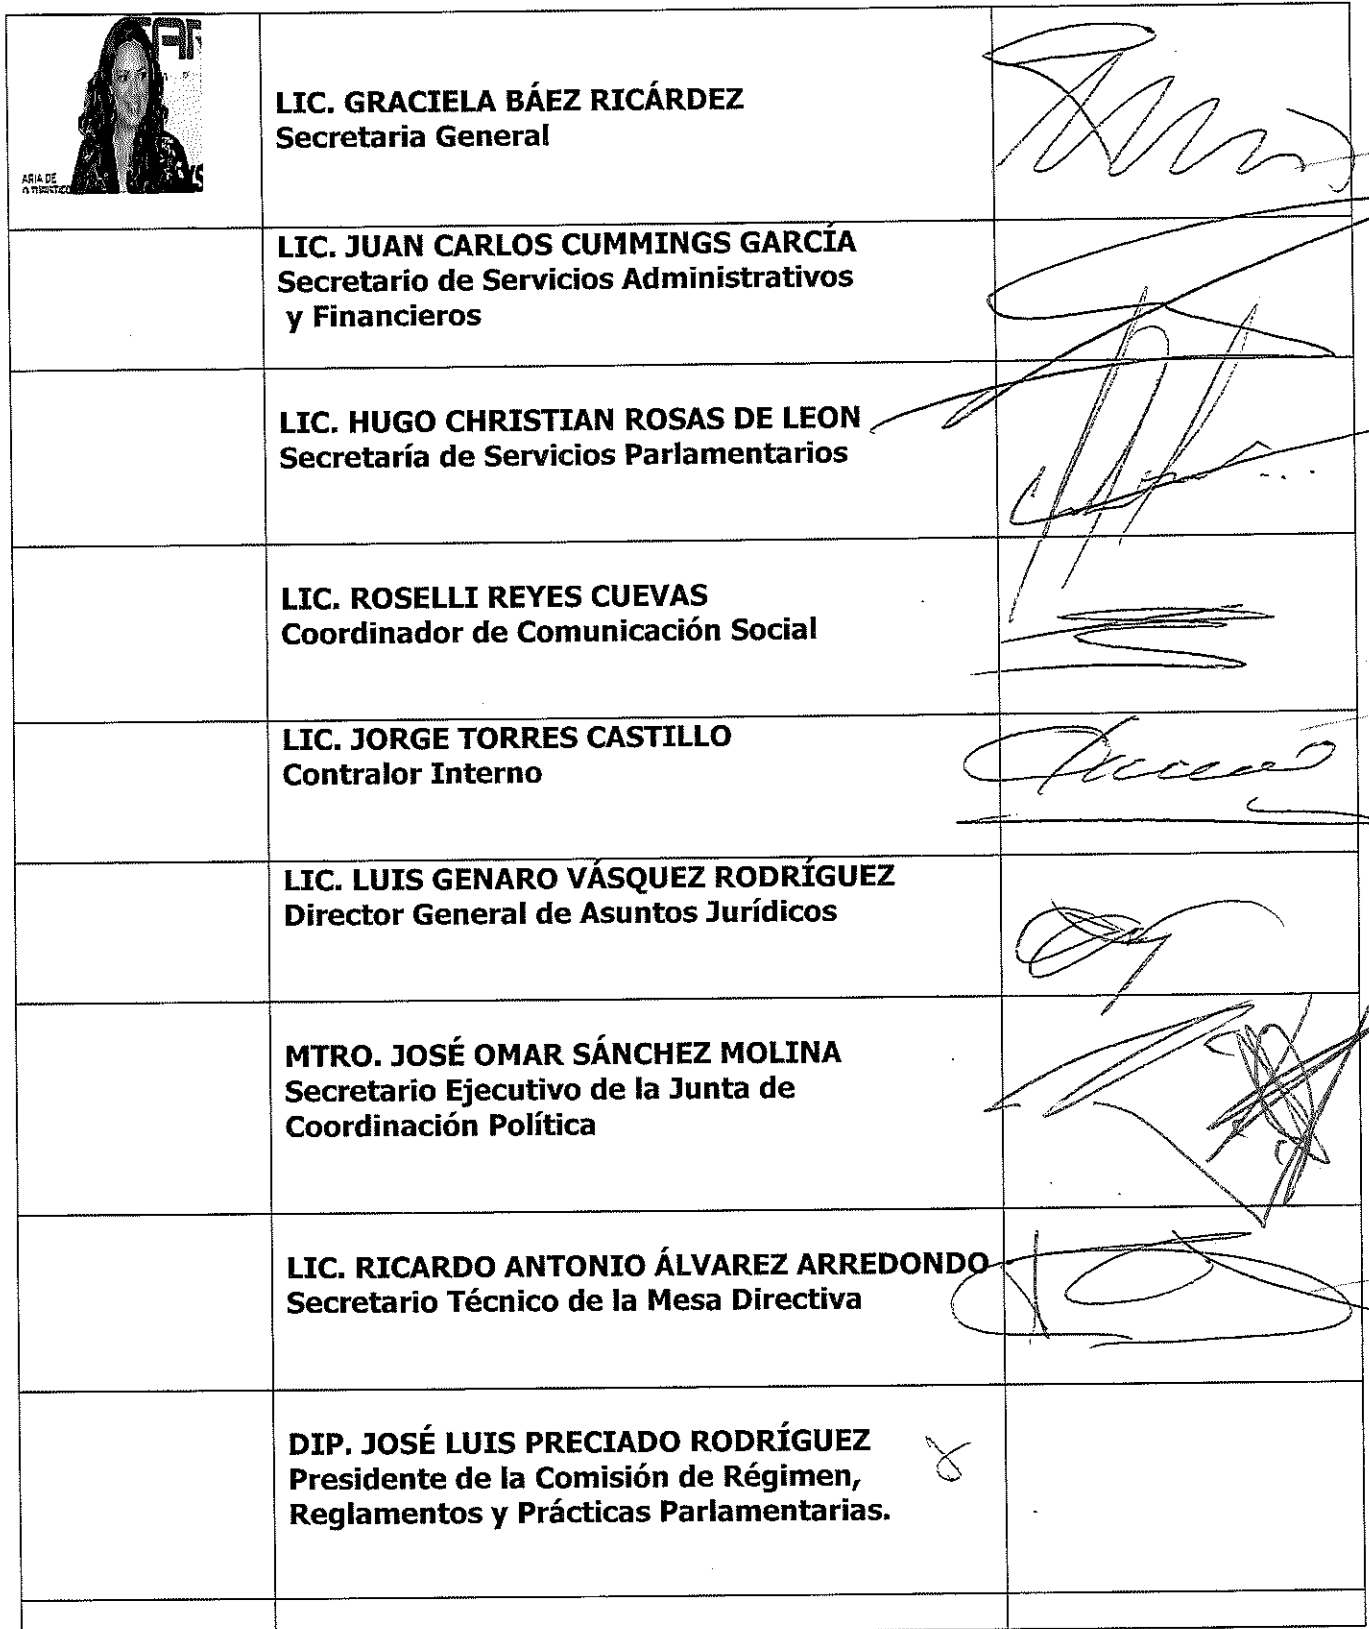 ARIA DE
LIC. GRACIELA BÁEZ RICÁRDEZ
Secretaria General
LIC. JUAN CARLOS CUMMINGS GARCÍA
Secretario de Servicios Administrativos
y Financieros
LIC. HUGO CHRISTIAN ROSAS DE LEON
Secretaría de Servicios Parlamentarios
LIC. ROSELLI REYES CUEVAS
Coordinador de Comunicación Social
LIC. JORGE TORRES CASTILLO
Contralor Interno
LIC. LUIS GENARO VÁSQUEZ RODRÍGUEZ
Director General de Asuntos Jurídicos
MTRO. JOSÉ OMAR SÁNCHEZ MOLINA
Secretario Ejecutivo de la Junta de
Coordinación Política
LIC. RICARDO ANTONIO ÁLVAREZ ARREDONDO
Secretario Técnico de la Mesa Directiva
DIP. JOSÉ LUIS PRECIADO RODRÍGUEZ
Presidente de la Comisión de Régimen,
Reglamentos y Prácticas Parlamentarias.